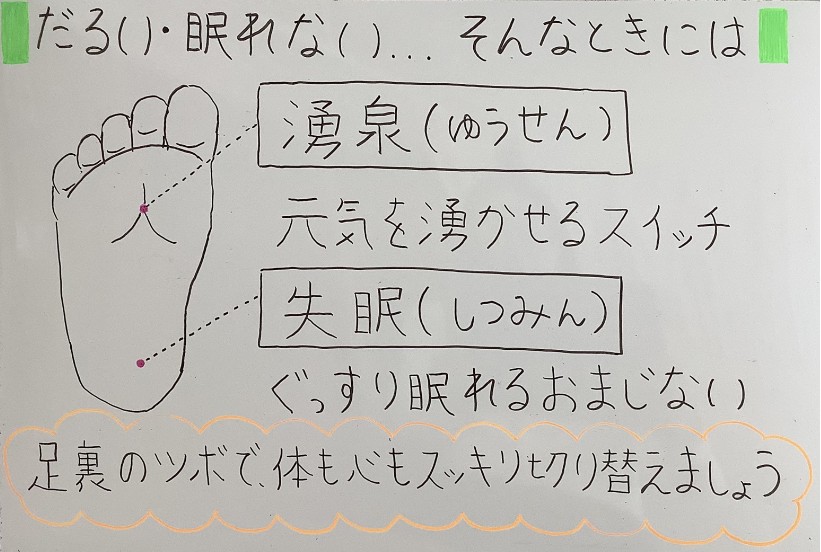 だるい・眠れない... そんなときには
湧泉(ゆうせん)
元気を湧かせるスイッチ
失眠(しつみん)
ぐっすり眠れるおまじない
足裏のツボで、体も心もスッキリセクり替えましょう